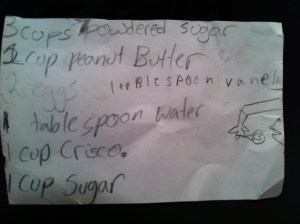 3 cups powdered sugar
1 cup peanut Butter
2 eggs 1 taBlespoon vanela
1 table spoon water
1 cup Crisco.
1 cup Sugar